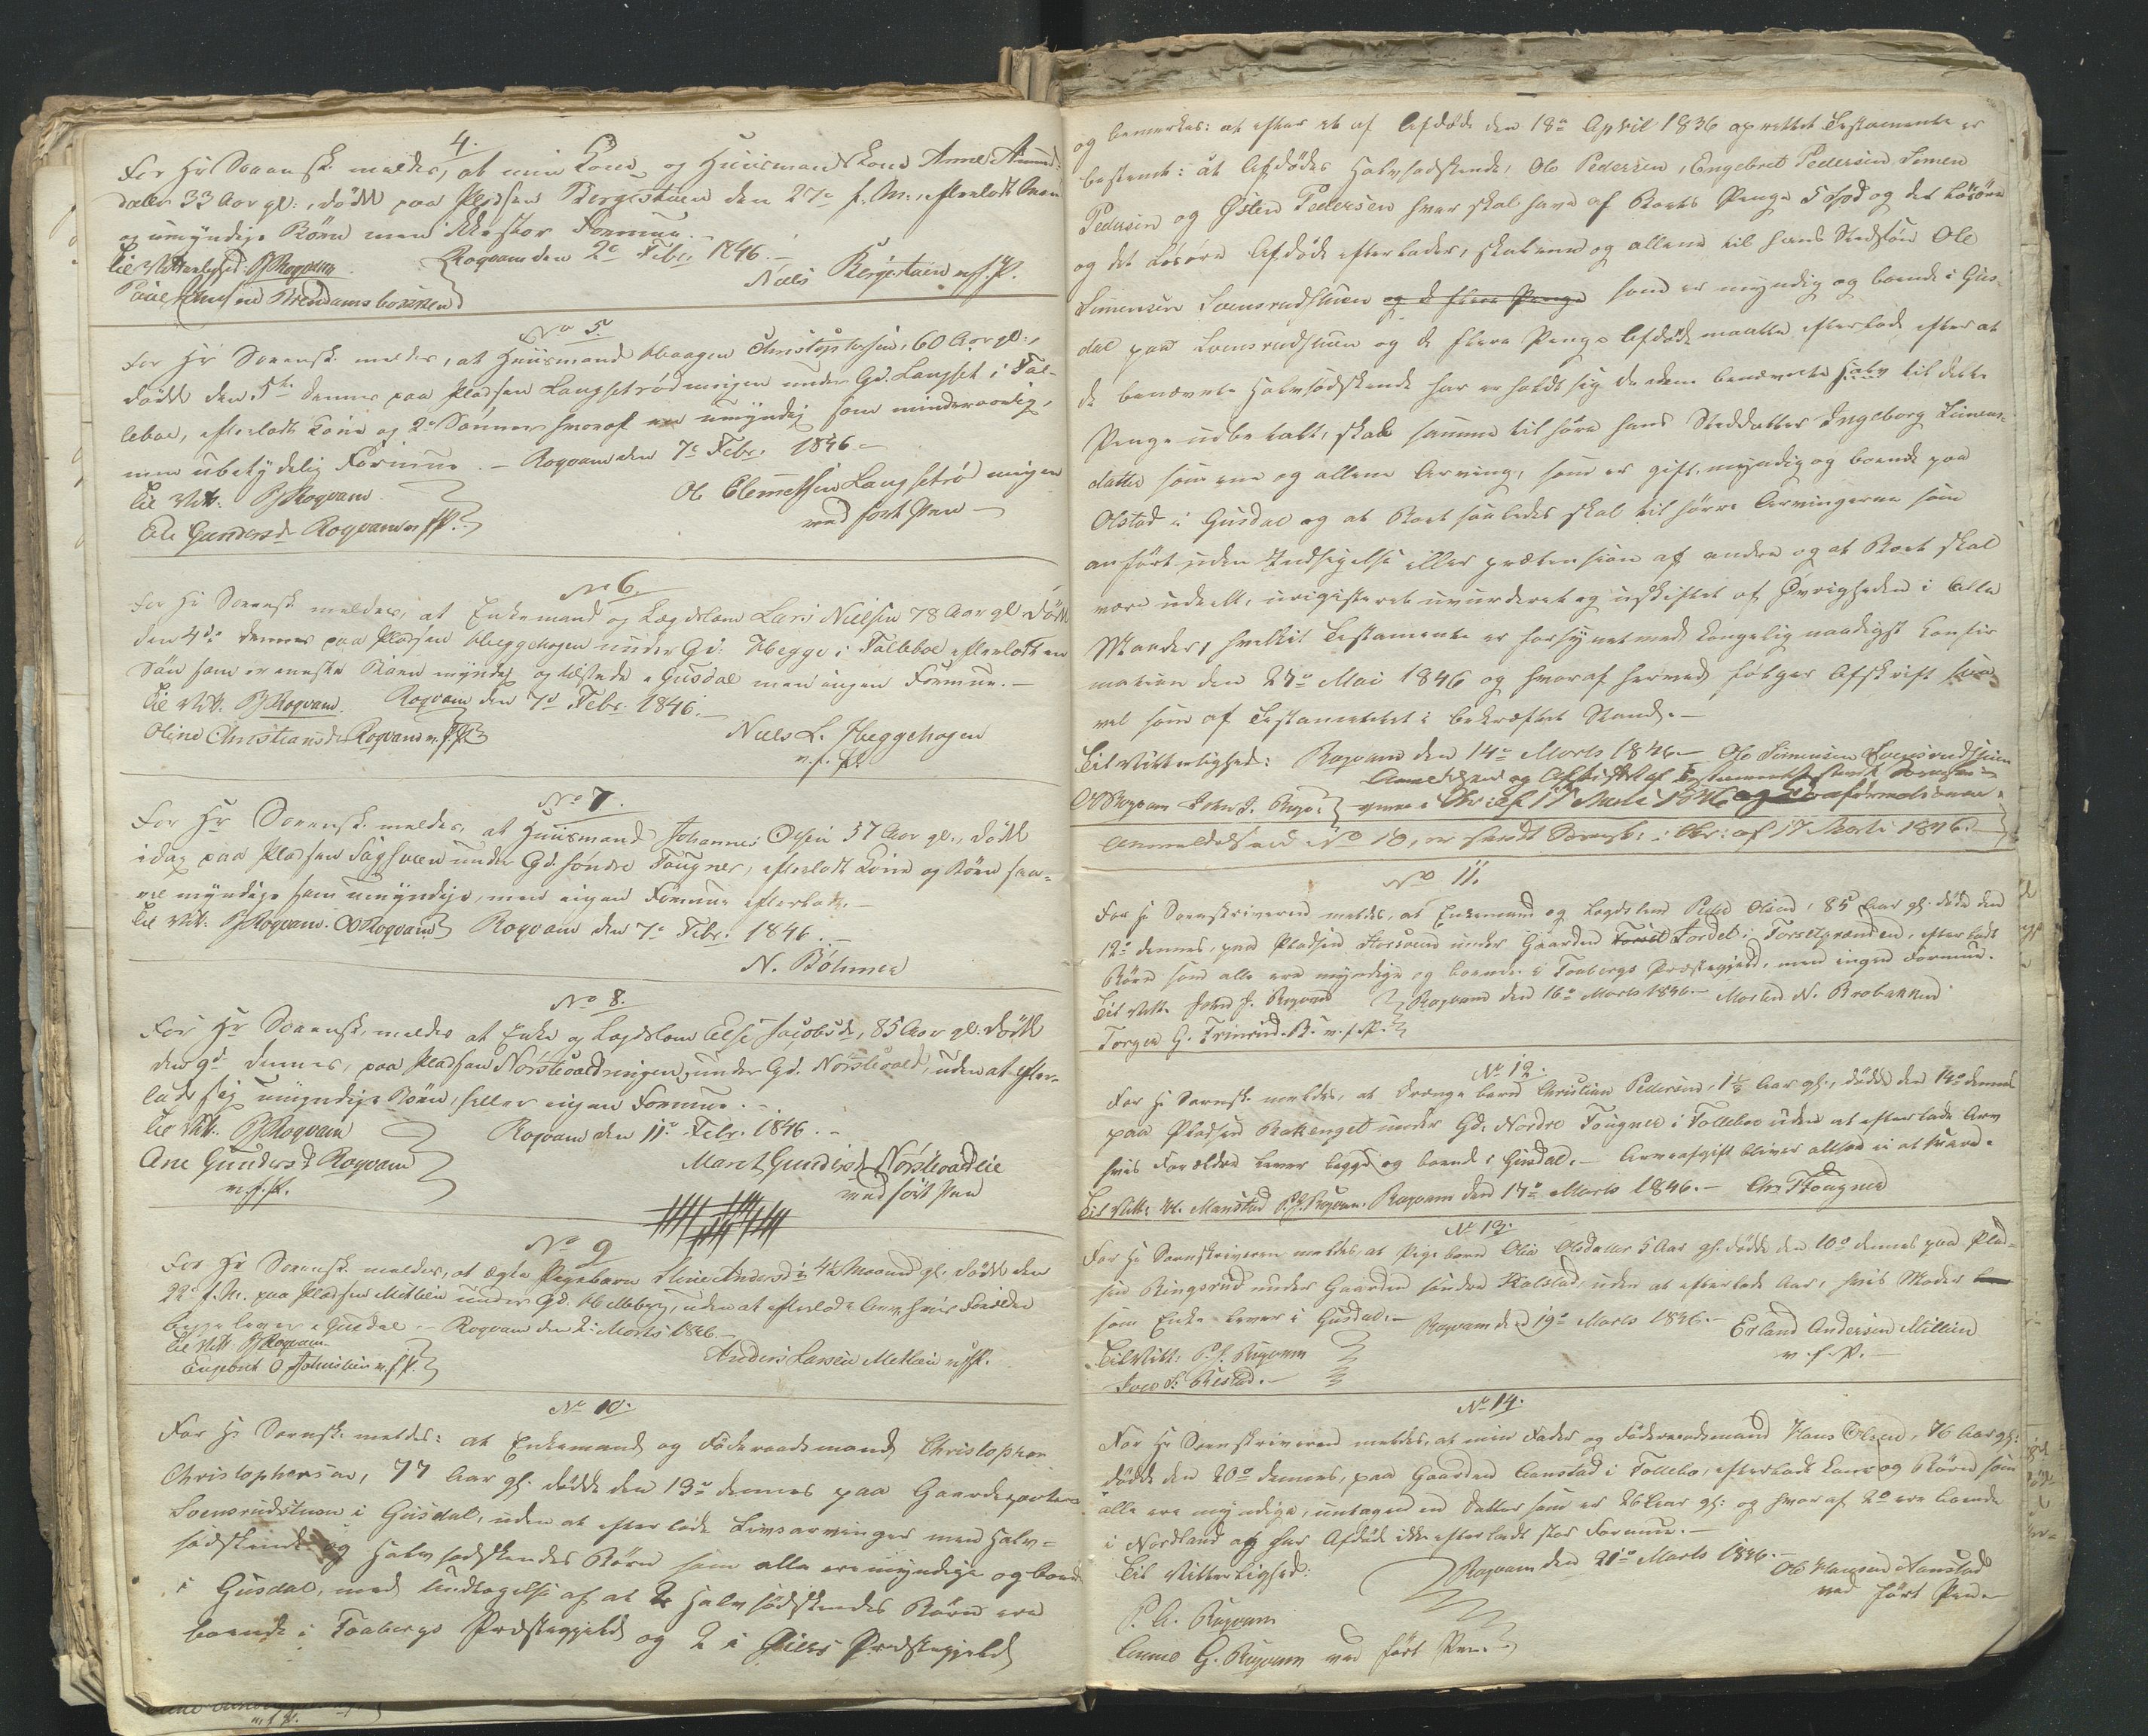 4.
For Hr Sorensk. meldes, at min Kone og Huusmandskone Anne Amund-
datter 33 Aar gl:, døde paa Pladsen Bergestuen den 27de f. M., efterlod Mand
og umyndige Børn men ikke stor Formue.
Til Vitterlighed: PJRogvam
Rogvam den 2de Febr. 1846.
Niels Bergestuen m.f.P.
No 5.
For Hr Sorensk. meldes, at Huusmand Haagen Christophersen, 60 Aar gl.,
døde den 5te dennes paa Pladsen Langsetrødningen under Gd. Langset i Fol-
leboe, efterlod Kone og 2de Sønner hvoraf en umyndig som mindreaarig,
men ubetydelig Formue. – Rogvam den 7de Febr. 1846.
Til Vitt. PJRogvam
Ole Clemetsen Langsetrødningen
med ført Pen
Gundersd. Rogvam m.f.P.
No 6.
For Hr Sorensk. meldes, at Enkemand og Lægdslem Lars Nielsen 78 Aar gl. døde
den 4de dennes paa Pladsen Heggehagen under Gd. Hegge i Folleboe efterlod en
Søn som er eneste Barn myndig og tilstede i Gusdal men ingen Formue.
Til Vitt. PJRogvam. Rogvam den 7de Febr. 1846.
Oline Christiansd. Rogvam m.f.P.
Niels L. Heggehagen
m.f.P.
No 7.
For Hr Sorensk. meldes, at Huusmand Johannes Olsen 57 Aar gl., døde
idag paa Pladsen Sagstuen under Gd. søndre Fougner, efterlod Kone og Børn saa-
vel myndige som umyndige, men ingen Formue efterlod.
Til Vitt. PJRogvam. OORogvam Rogvam den 7de Febr. 1846.
N. Böhmer
No 8.
For Hr Sorensk. meldes at Enke og Lægdslem Else Jacobsd., 85 Aar gl. døde
den 9de dennes, paa Pladsen Nørstevoldringen, under Gd. Nørstevold, uden at efter-
lade sig umyndige Børn, heller ingen Formue.
Til Vitt. PJRogvam
Rogvam den 11te Febr. 1846.
Ane Gundersd. Rogvam
m.f.P.
Maret Gundersd. Nørstevoldeie
med ført Pen
No 9
For Hr Sorensk. meldes, at ægte Pigebarn Andersd. 4½ Maaned gl. døde den
22de f. M. paa Pladsen Mitlien under Gd. Helleberg, uden at efterlade Arv, hvis Forældre
begge lever i Gusdal – Rogvam den 2de Marts 1846
Til Vitt. PJRogvam
Engebret O m.f.P.
Anders Larsen Metlien m.f.P.
No 10.
For Hr Sorensk. meldes: at Enkemand og Føderaadsmand Christopher
Christophersen, 77 Aar gl. døde den 13de dennes paa Gaardeparten
Loensrudstuen i Gusdal, uden at efterlade Livsarvinger men Halv-
sødskende og Halvsødskendes Børn som alle ere myndige og boende
i Gusdal, med Undtagelse af at 2 Halvsødskendes Børn ere
boende i Faabergs Præstegjeld og 2 i Øiers Præstegjeld
og bemærkes: at efter et af Afdøde den 18de April 1836 oprettet Testamente er
bestemt: at Afdødes Halvsødskende, Ole Pedersen, Engebret Pedersen, Simen
Pedersen og Østen Pedersen hver skal have af Boets Penge 5 Spd og det Løsøre
og det Løsøre Afdøde efterlader, skal ene og allene til hans Stedsøn Ole
Simensen Loensrudstuen og de flere Penge som er myndig og boende i Gus-
dal paa Loensrudstuen og de flere Penge Afdøde maatte efterlade efter at
de benævnte Halvsødskende har erholdt sig de dem benævnte til dette
Penge udbetalt, skal samme tilhøre hans Steddatter Ingeborg Simens-
datter som ene og allene Arving, som er gift, myndig og boende paa
Olstad i Gusdal og at Boet saaledes skal tilhøre Arvingerne som
anført uden Indsigelse eller prætension af andre og at Boet skal
være udeelt, uregistreret uvurderet og uskiftet af Øvrigheden i alle
Maader, hvilket Testamente er forsynet med Kongelig naadigst Confir
mation den 27de Mai 1846 og hvoraf herved følger Afskrift saa-
vel som af Testamentet i bekræftet Stand.
Til Vitterlighed: Rogvam den 14de Marts 1846. – Ole Simensen Loensrudstuen
Anmeldelsen og Afskrift af Testamentet sendt Sorensk.
OORogvam John J. Rogv. i Brev af 17 Marts 1846 og Confirmationen
Anmeldelsen No 10, er sendt Sorensk. i Br. af 17 Marts 1846.
No 11.
For Hr Sorenskriveren meldes, at Enkemand og Lægdslem Peder Olsen, 85 Aar gl. døde den
12te dennes, paa Pladsen Storsveen under Gaarden Forset Fordet i Forsetgrænden, efterlod
Børn som alle ere myndige og boende i Faabergs Præstegjeld, men ingen Formue.
Til Vitt. John J. Rogvam Rogvam den 16de Marts 1846. – Morten N. Brobakken
Torger G. m.f.P.
No 12.
For Hr Sorensk. meldes, at Drengebarn Christian Pedersen, 1½ Aar gl., døde den 14de dennes
paa Pladsen Bakenget under Gd. Nordre Fougner i Folleboe uden at efterlade Arv
hvis Forældre lever begge og boende i Gusdal. – Arveafgift bliver altsaa ei at svare.
Til Vitt. P.J.Rogvam. Rogvam den 17de Marts 1846. – Chr. Fougner
No 13.
For Hr Sorenskriveren meldes, at Pigebarn Olia Olsdatter 5 Aar gl. døde den 10de dennes paa Plad-
sen Ringsrud under Gaarden søndre Kalstad, uden at efterlade Arv, hvis Moder
som Enke lever i Gusdal. – Rogvam den 19de Marts 1846. – Erland Andersen Millien
m.f.P.
Til Vitt: P.J. Rogvam
No 14.
For Hr Sorenskriveren meldes, at min Fader og Føderaadsmand Hans Olsen, 76 Aar gl.
døde den 20de dennes, paa Gaarden Aanstad i Follebo, efterlod Kone og Børn som
alle ere myndige, undtagen en Datter som er 26 Aar gl. og hvoraf 2de ere boende
i Nordland og har Afdøde ikke efterladt stor Formue.
Til Vitterlighed:
Rogvam den 21de Marts 1846. –
Ole Hansen Aanstad
med ført Pen
P.A. Rogvam
Anne G. Rogvam med ført Pen.